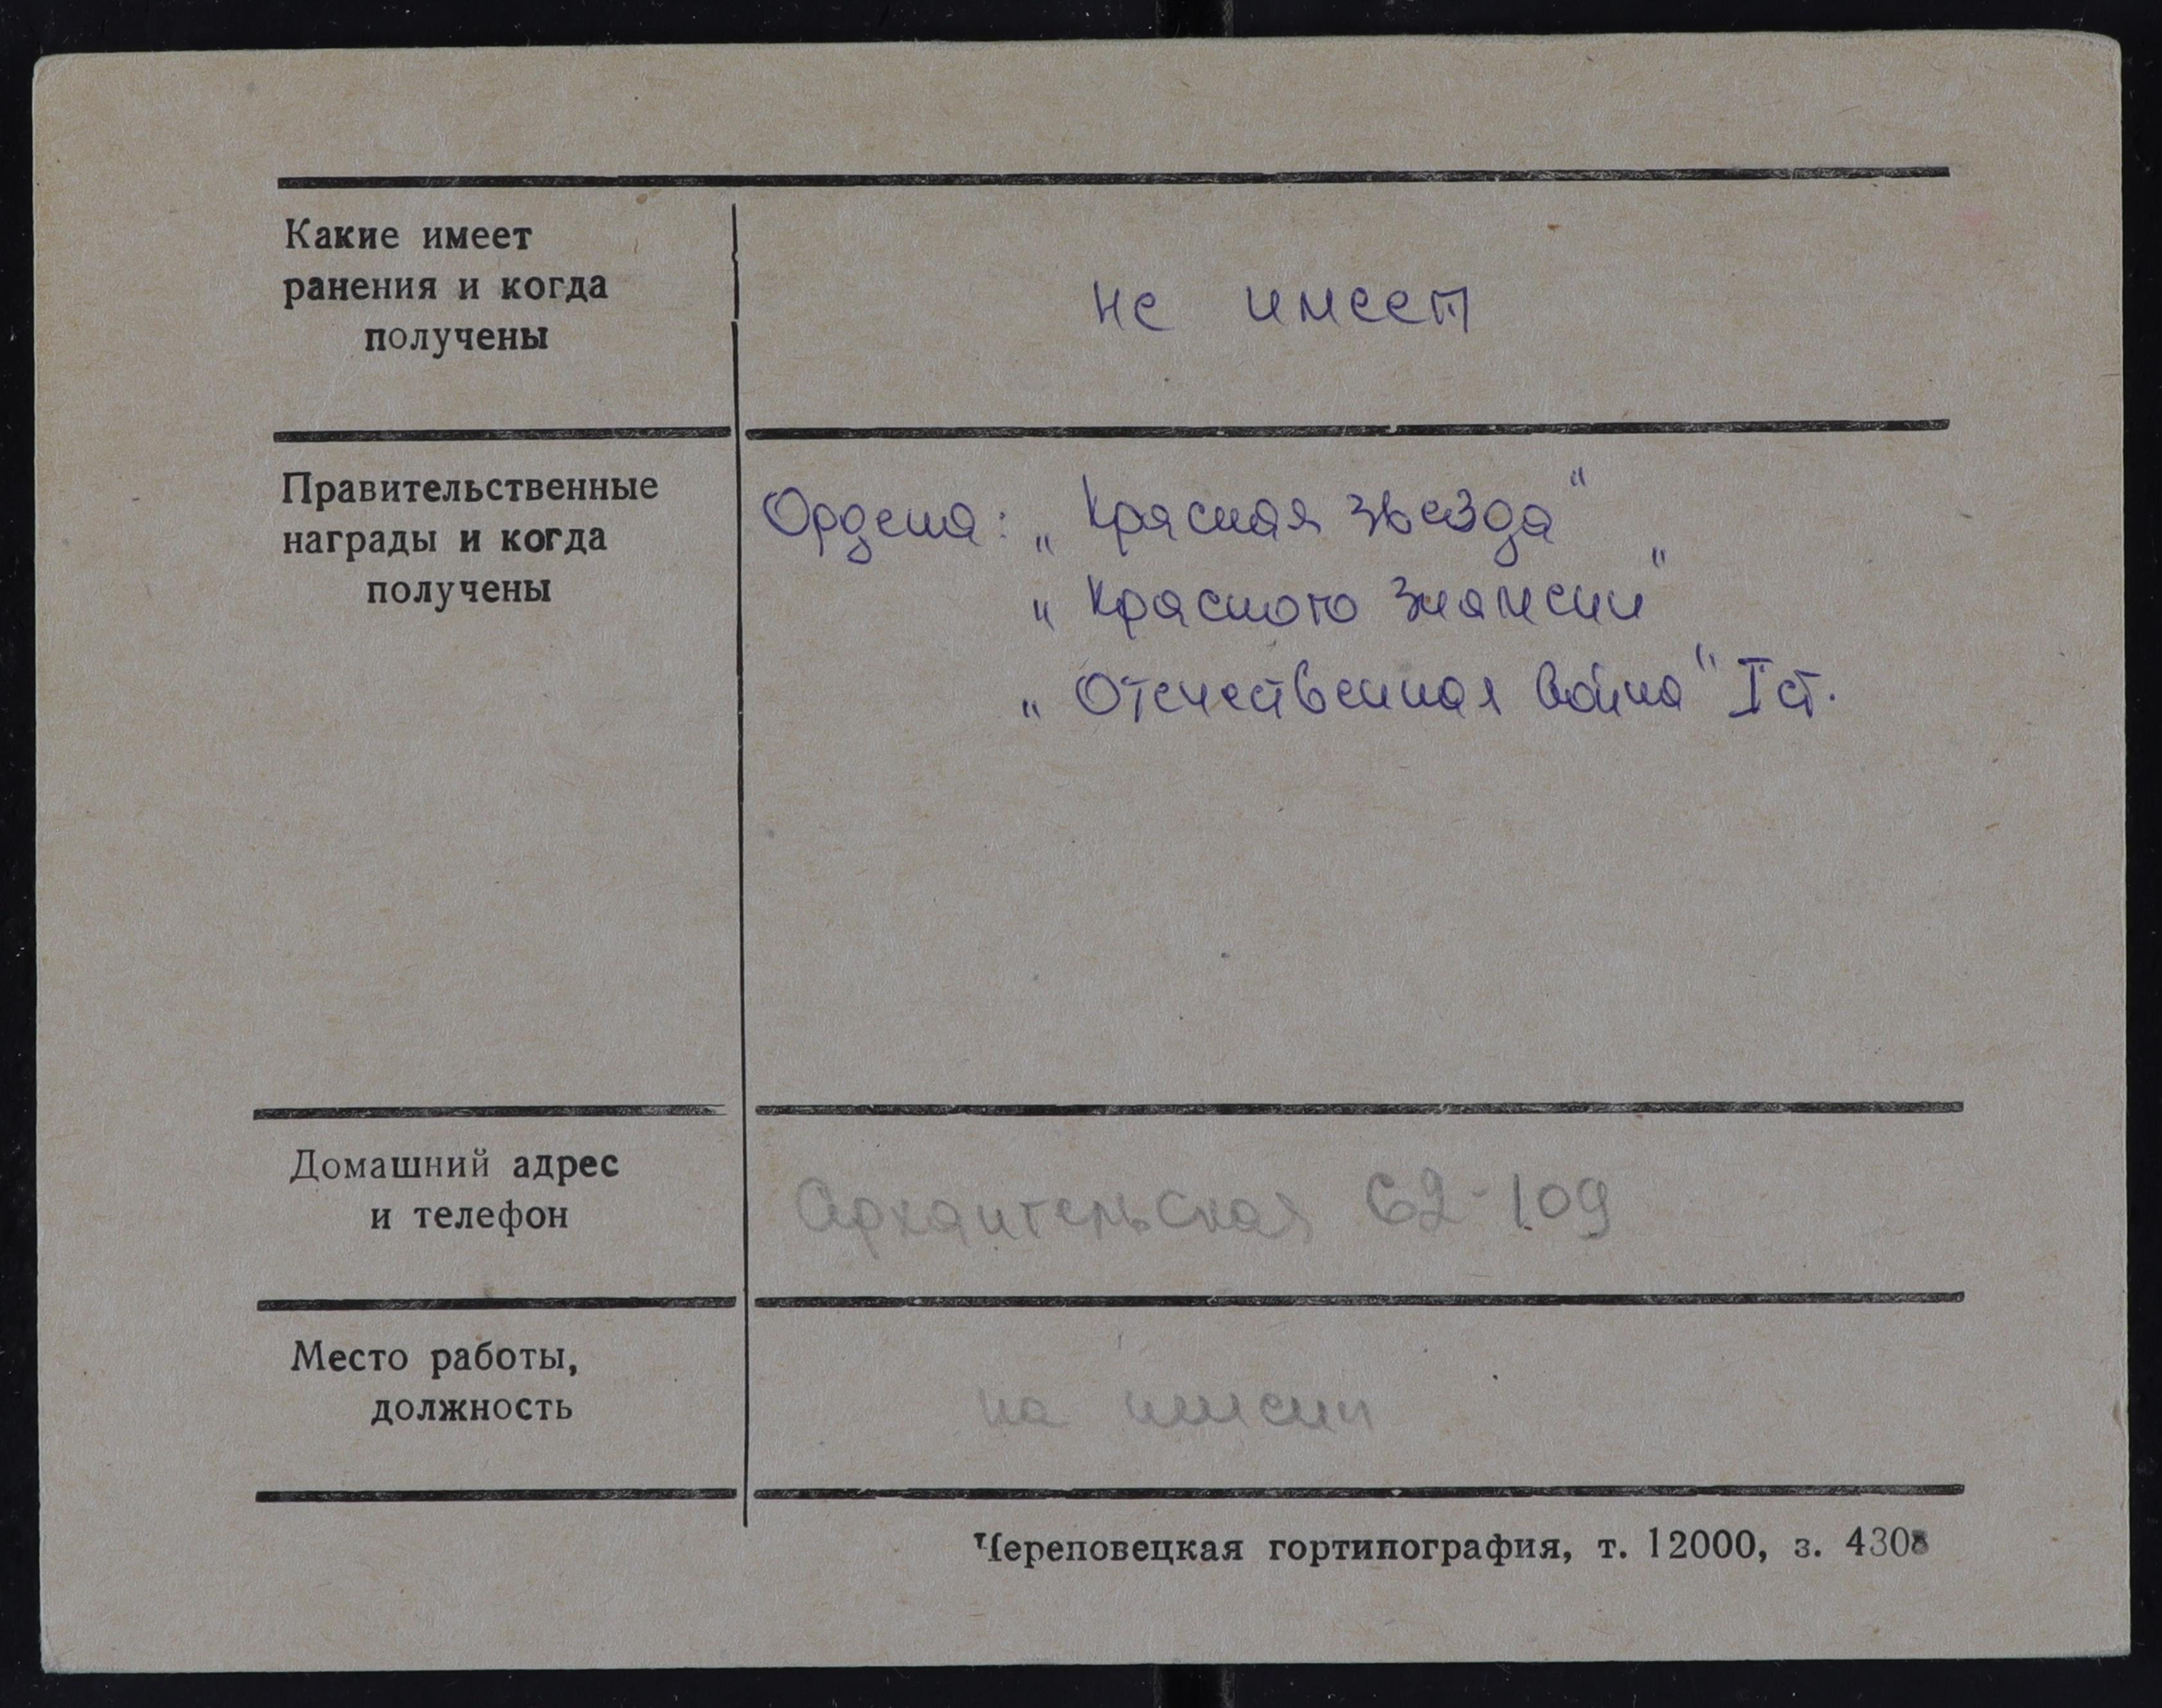 Какие имеет
ранения и когда
получены
не имеет
Правительственные
награды и когда
получены
Ордена: „Красная звезда"
„Красного Знамени"
„Отечественная война" I ст.
Домашний адрес
и телефон
Архангельская 62-109
Место работы,
должность
на пенсии
Череповецкая гортипография, т. 12000, з. 4308